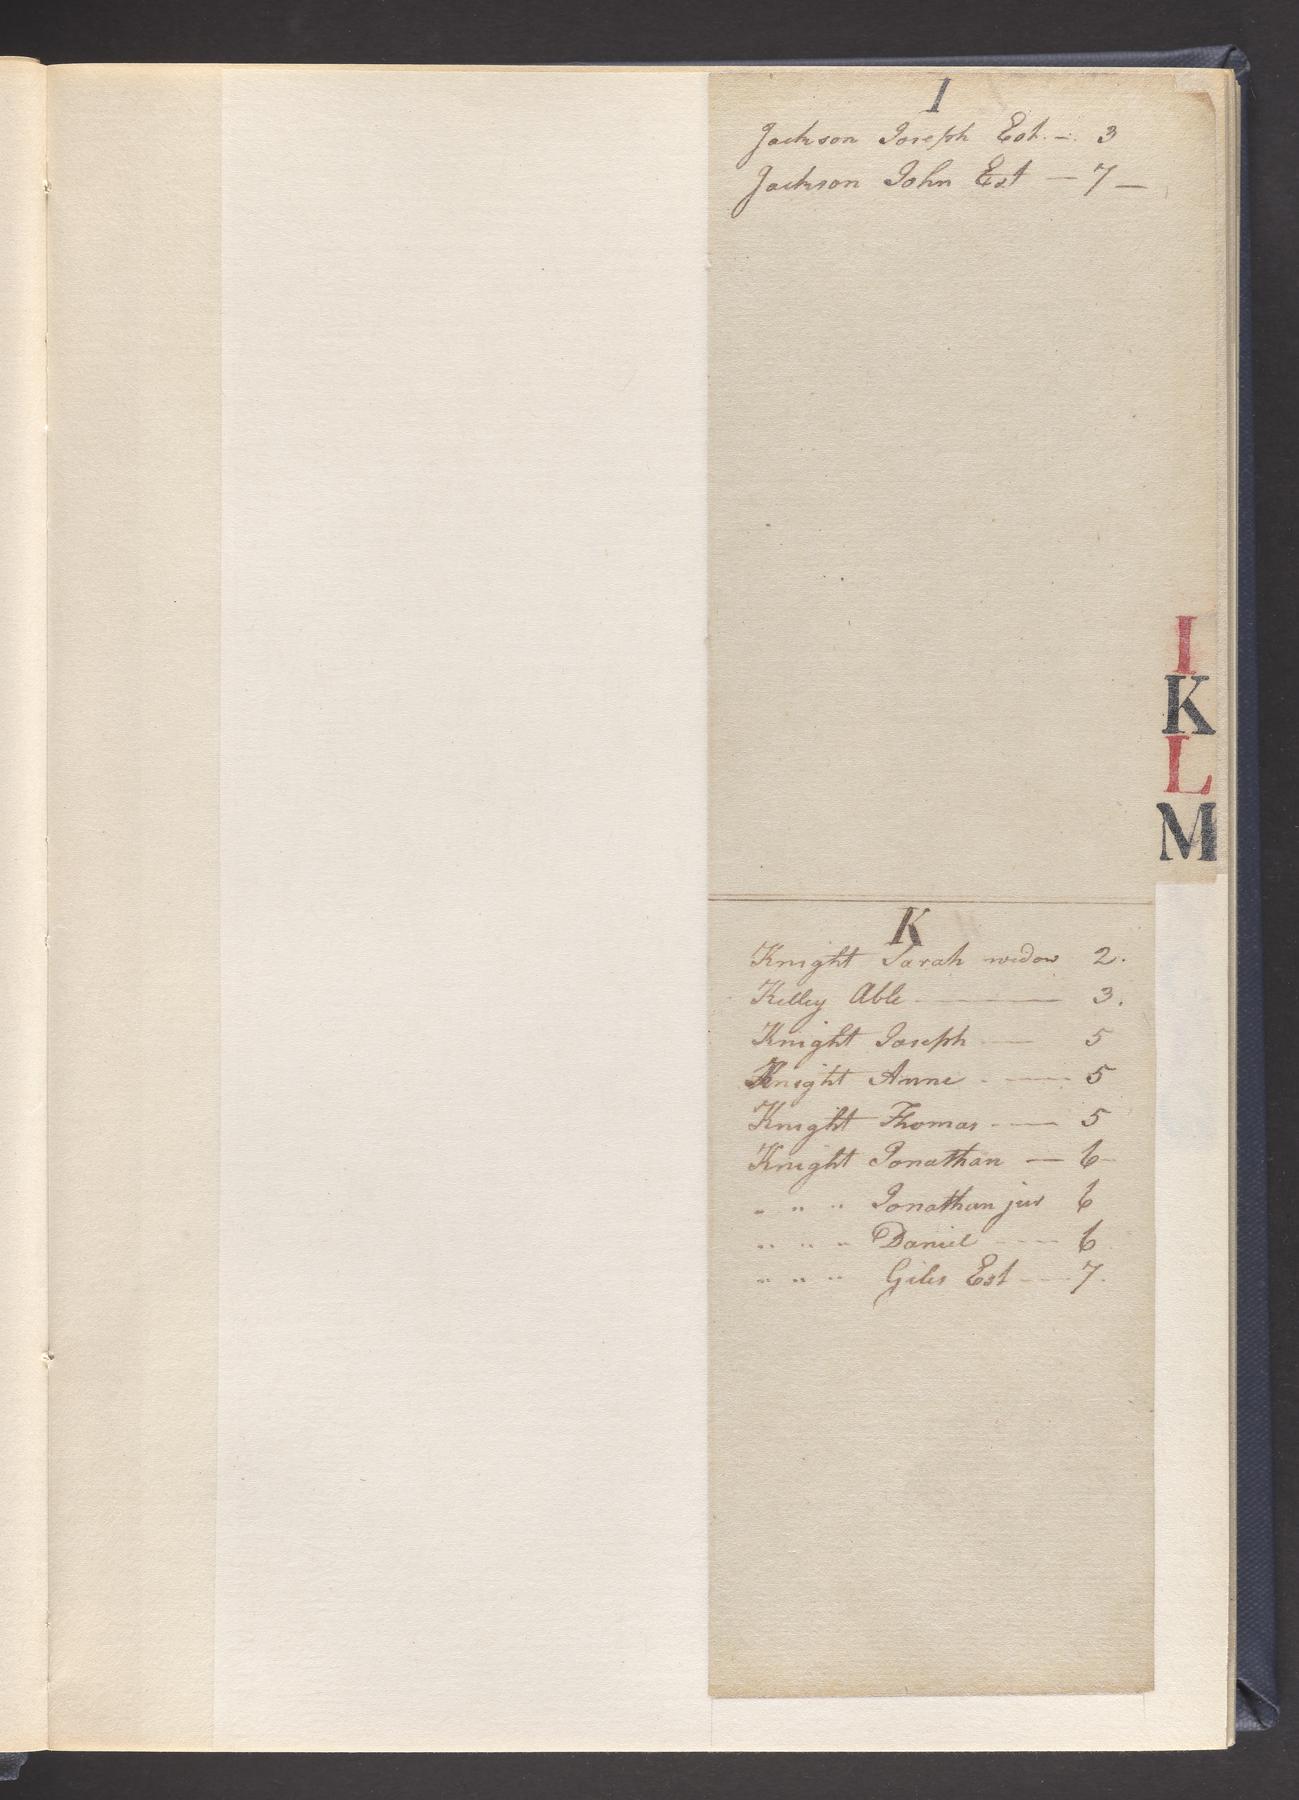 I
Jackson Joseph Est. — 3
Jackson John Est — 7 —
I
K
L
M
K
Knight Sarah widow 2.
Kelley Able — 3.
Knight Joseph — 5
Knight Anne — 5
Knight Thomas — 5
Knight Jonathan — 6
" " " Jonathan jur 6
" " " Daniel — 6
" " " Giles Est — 7.